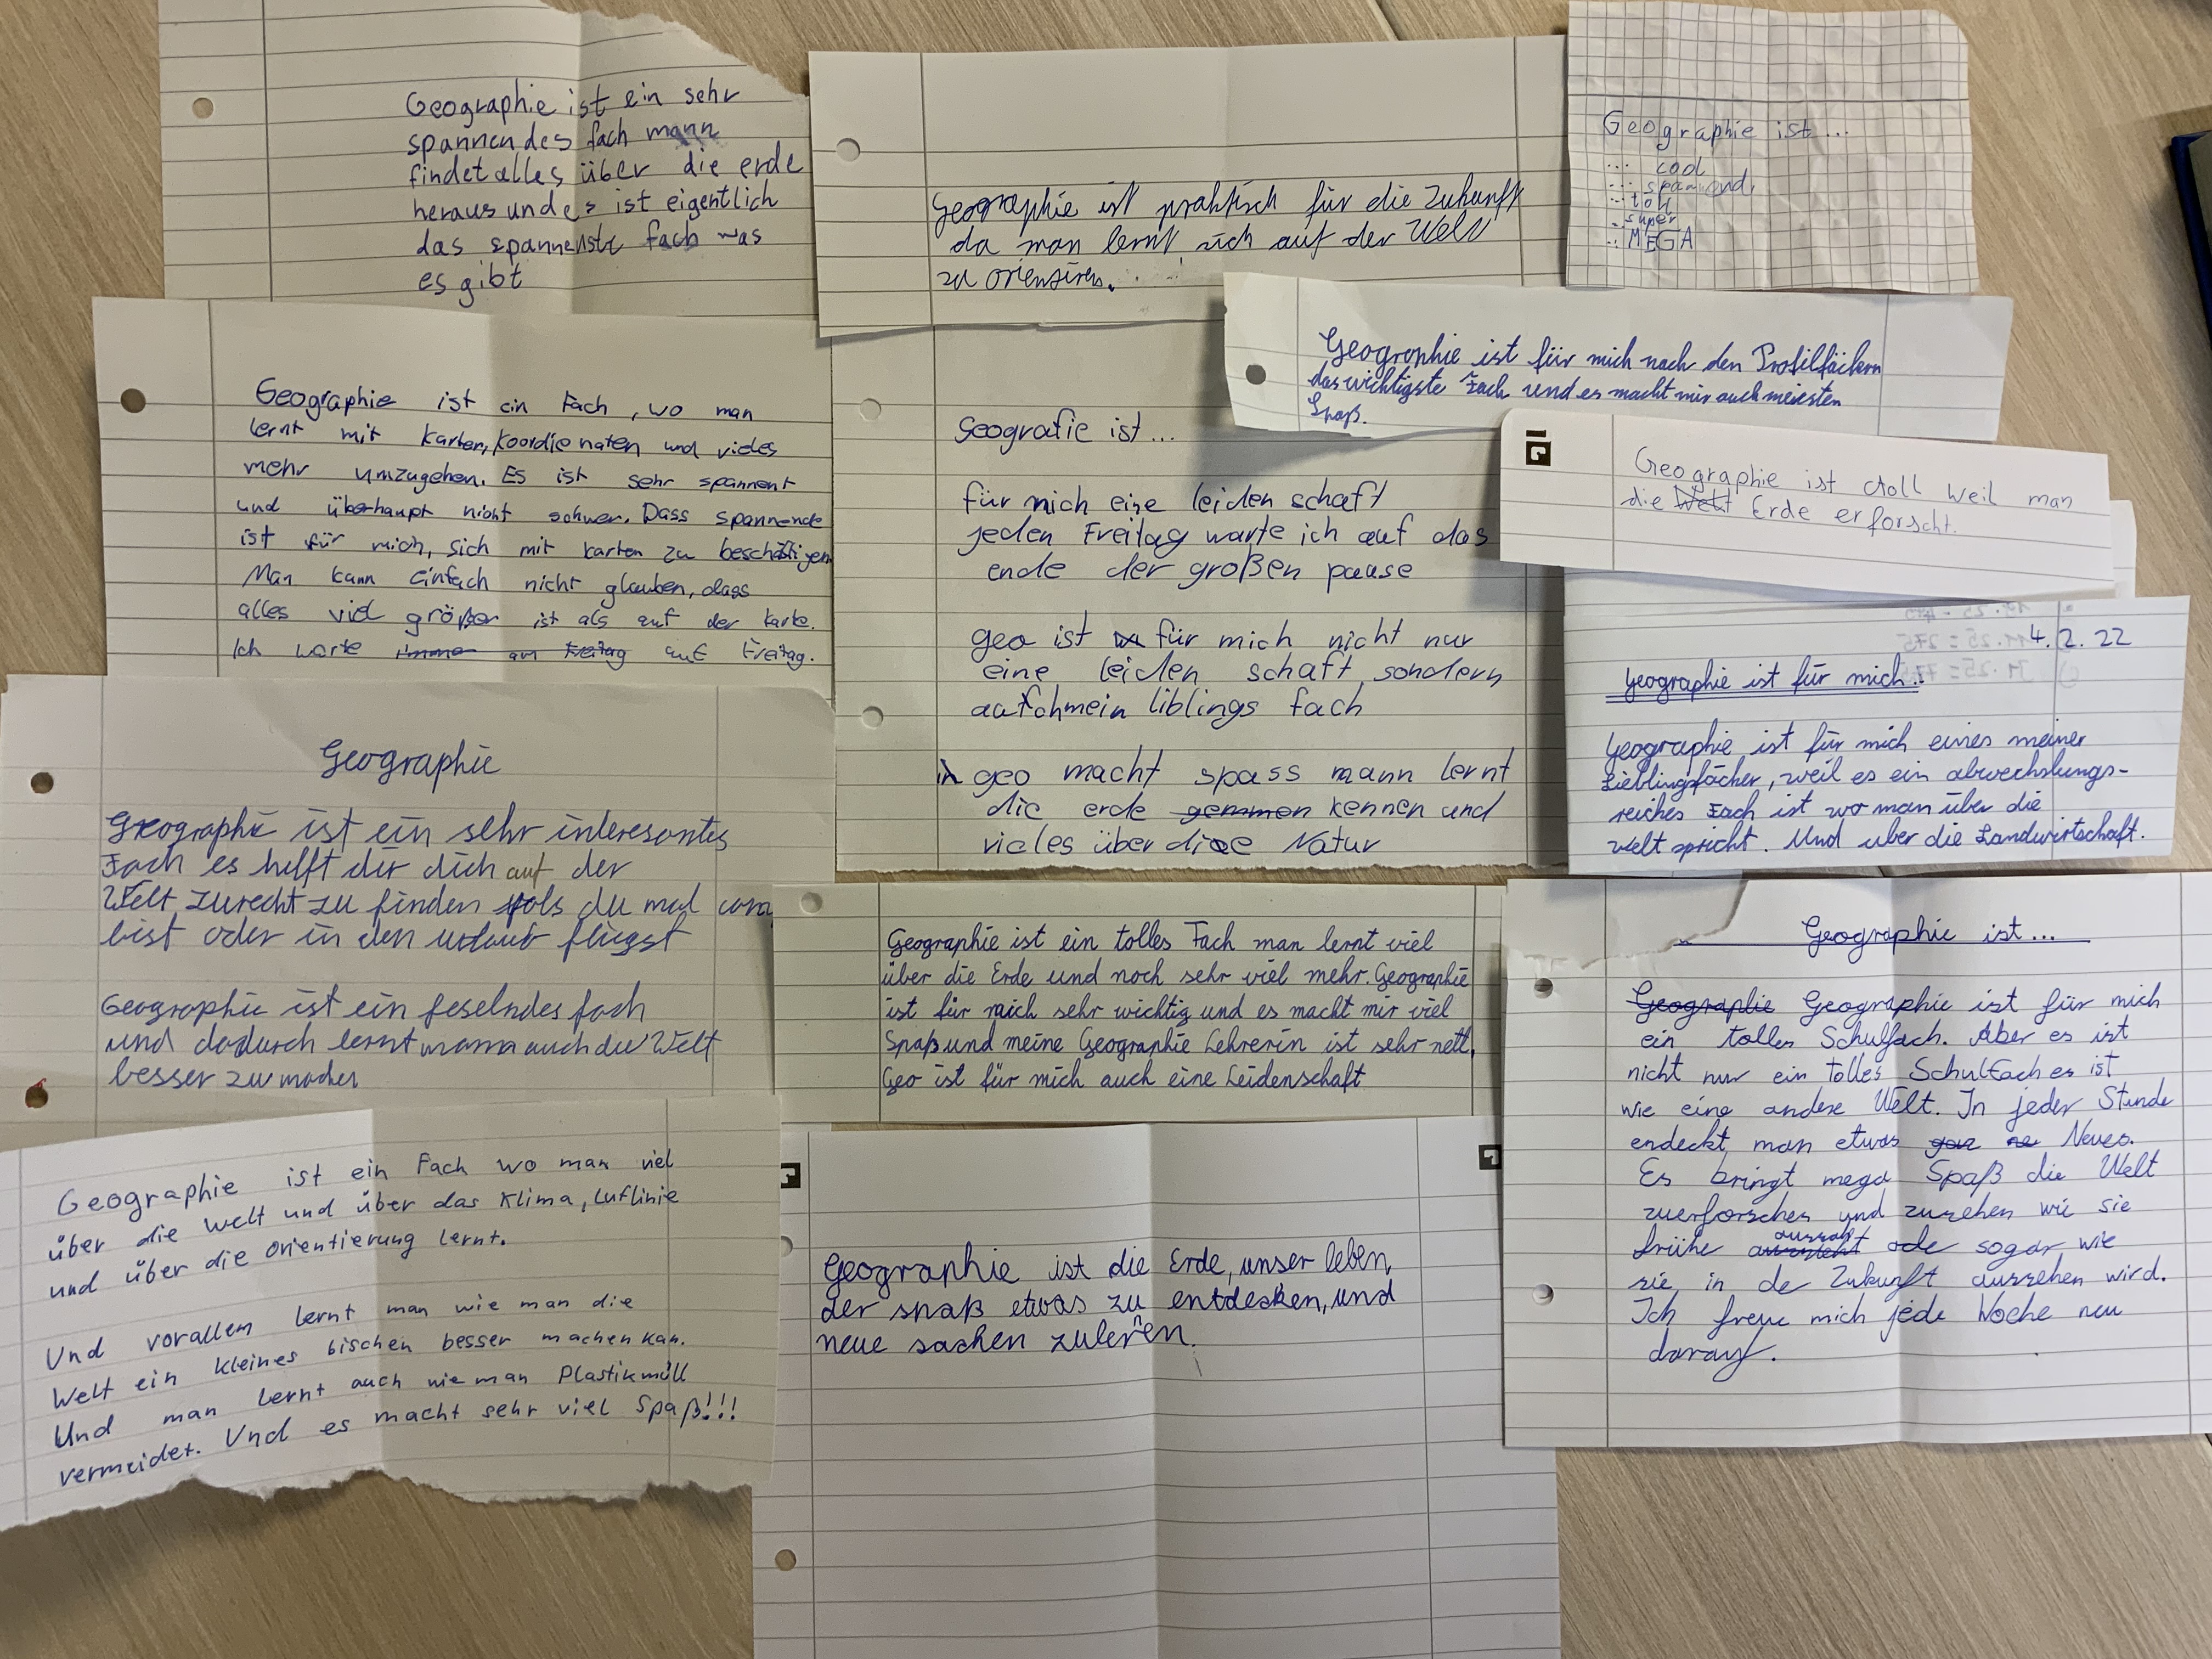 Geographie ist ein sehr
spannendes fach mann
findet alles über die erde
heraus und es ist eigentlich
das spannenste fach was
es gibt
Geographie ist praktisch für die Zukunft
da man lernt sich auf der Welt
zu orientiren.
Geographie ist...
... cool
... spannend,
... toll
... super
... MEGA
Geographie ist für mich nach den Profilfäckern
das wichtigste Fach und es macht mir auch meiesten
Spaß.
Geographie ist doll weil man
die Welt Erde erforscht.
Geographie ist ein Fach, wo man
lernt mit Karten, Koordienaten und vieles
mehr umzugehen. Es ist sehr spannent
und überhaupt nicht schwer. Dass spannende
ist für mich, sich mit karten zu beschäftigen
Man kann einfach nicht glauben, dass
alles viel größer ist als auf der Karte.
Ich warte immer am Freitag auf Freitag.
Geografie ist...
für mich eine leiden schaft
jeden Freitag warte ich auf das
ende der großen pause
geo ist für mich nicht nur
eine leiden schaft, sondern
auch mein liblings fach
geo macht spass mann lernt
die erde kennen und
vieles über die Natur
4.2.22
Geographie ist für mich..
Geographie ist für mich eines meiner
Lieblingsfächer, weil es ein abwechslungs-
reiches Fach ist wo man über die
welt spricht. Und uber die Landwirtschaft.
Geographie
Geographie ist ein sehr interesantes
Fach es hilft dir dich auf der
Welt zurecht zu finden fals du mal
bist oder in den urlaub fliegst
Geographie ist ein feselndes fach
und dadurch lernt mann auch die Welt
besser zu machen
Geographie ist ein tolles Fach man lernt viel
über die Erde und noch sehr viel mehr. Geographie
ist für mich sehr wichtig und es macht mir viel
Spaß und meine Geographie Lehrerin ist sehr nett.
Geo ist für mich auch eine Leidenschaft
Geographie ist...
Geographie Geographie ist für mich
ein tolles Schulfach. Aber es ist
nicht nur ein tolles Schulfach es ist
wie eine andere Welt. In jeder Stunde
endeckt man etwas gar ne Neues.
Es bringt mega Spaß die Welt
zuerforschen und zusehen wie sie
frühe aussah ode sogar wie
sie in de Zukunft aussehen wird.
Ich freue mich jede Woche neu
darauf.
Geographie ist ein Fach wo man viel
über die welt und über das Klima, Luflinie
und über die orientierung lernt.
Und vorallem lernt man wie man die
Welt ein kleines bischen besser machen kan.
Und man lernt auch wie man Plastikmüll
vermeidet. Und es macht sehr viel Spaß!!!
Geographie ist die Erde, unser leben,
der spaß etwas zu entdecken, und
neue sachen zulernen.